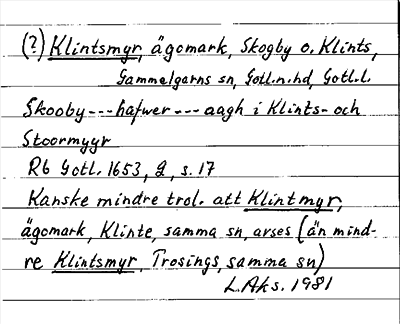 (?) Klintsmyr, ägomark, Skogby o. Klints,
Gammelgarns sn, Gotl.n.hd, Gotl.l.
Skooby---hafwer---aagh i Klints- och
Stoormyyr
Rb Gotl. 1653, 2, s. 17
Kanske mindre trol. att Klintmyr,
ägomark, Klinte, samma sn, avses (än mind-
re Klintsmyr, Trosings, samma sn)
L.Aks. 1981